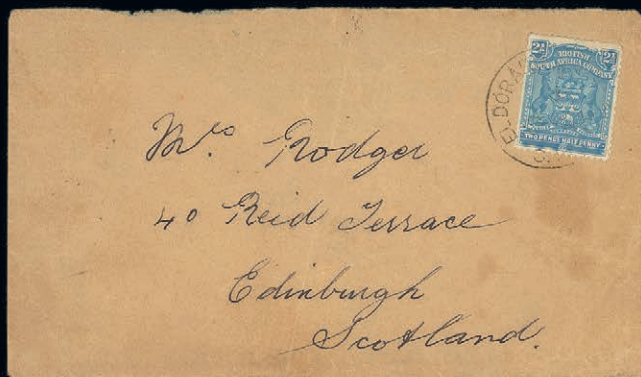 2½ BRITISH 2½
SOUTH AFRICA COMPANY
TWO PENCE HALF PENNY
Mrs. Rodger
40 Reid Terrace
Edinburgh
Scotland.